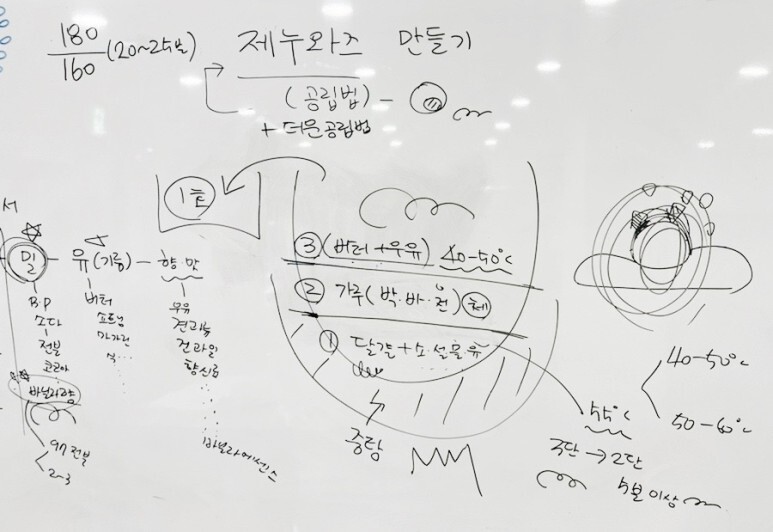 180
160
(20~25분)
제누와즈 만들기
(공립법) -
+ 더운공립법
1호
서
밀 - 유(기름) - 향·맛
B.P
소다
전분
코코아
바닐라향
97 전분
2-3
버터
쇼트닝
마가린
우유
견과류
건과일
향신료
바닐라에센스
③ (버터+우유) 40-50℃
② 가루(박·바·전) 체
① 달걀+소·설·물·유
중탕
55℃
3단→2단
5분이상
40-50℃
50-60℃